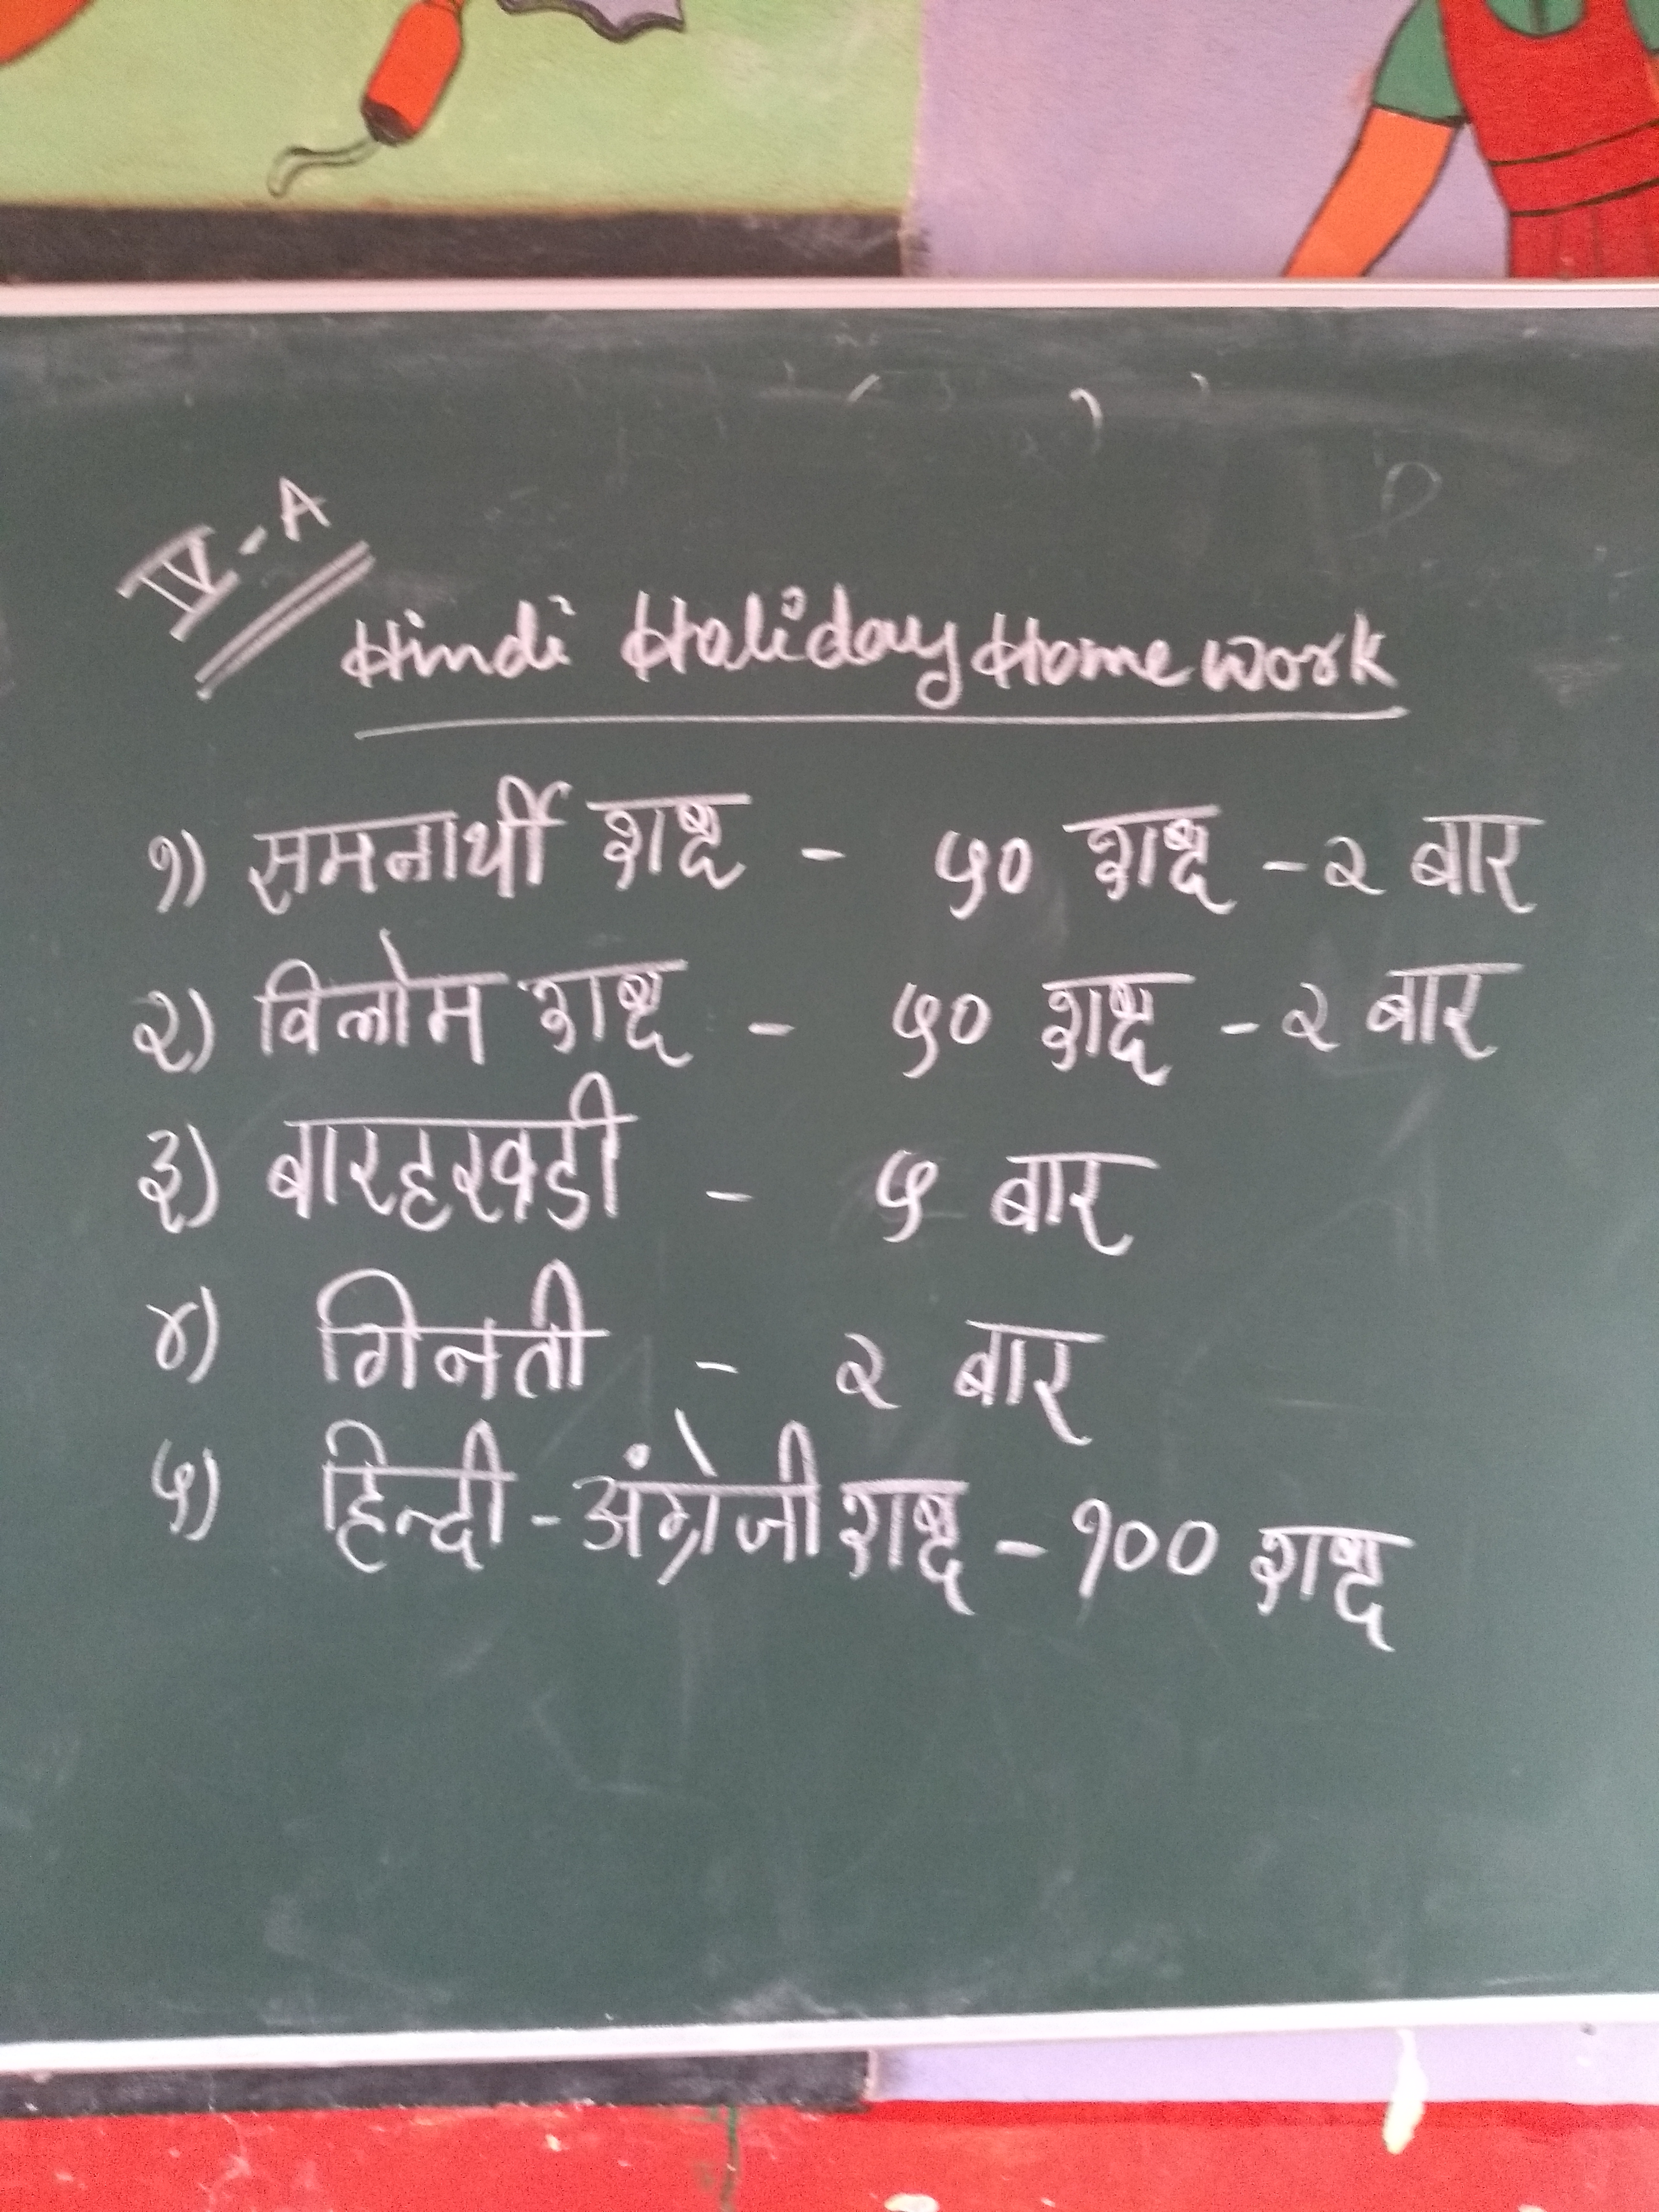 IV - A
Hindi Holiday Home work
१) समनार्थी शब्द - ५० शब्द - २ बार
२) विलोम शब्द - ५० शब्द - २ बार
३) बारहखडी - ५ बार
४) गिनती - २ बार
५) हिन्दी - अंग्रेजी शब्द - १०० शब्द